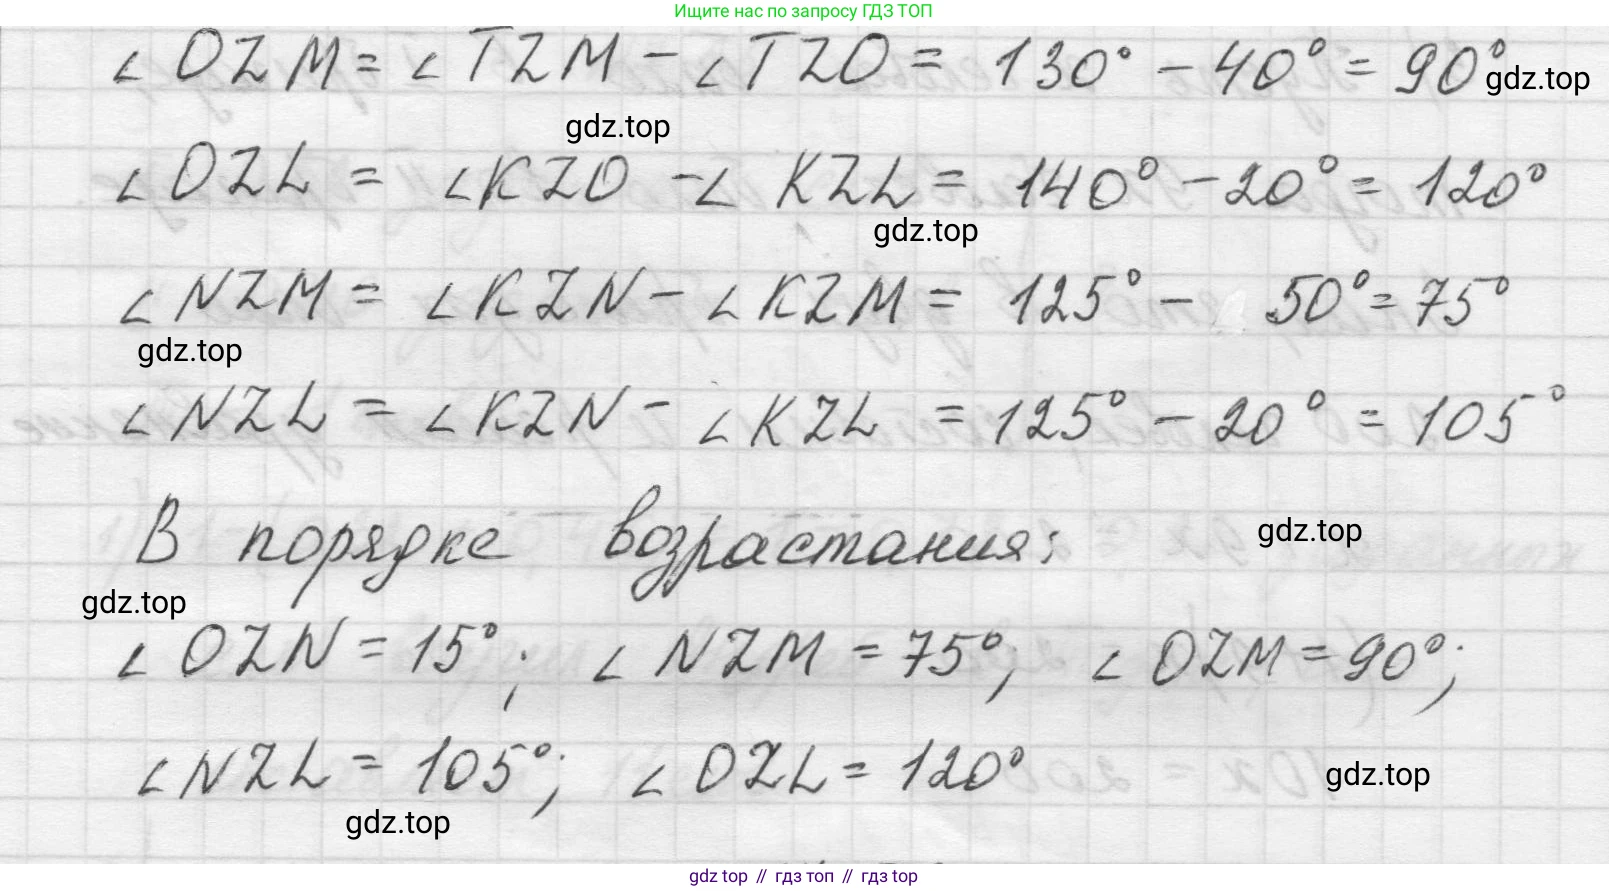 Ищите нас по запросу ГДЗ ТОП
∠OZM = ∠TZM - ∠TZO = 130° - 40° = 90°
gdz.top
gdz.top
∠OZL = ∠KZO - ∠KZL = 140° - 20° = 120°
gdz.top
∠NZM = ∠KZN - ∠KZM = 125° - 50° = 75°
gdz.top
∠NZL = ∠KZN - ∠KZL = 125° - 20° = 105°
В порядке возрастания:
gdz.top
gdz.top
∠OZN = 15°; ∠NZM = 75°; ∠OZM = 90°;
∠NZL = 105°; ∠OZL = 120°
gdz.top
gdz.top
gdz top // гдз топ // гдз top